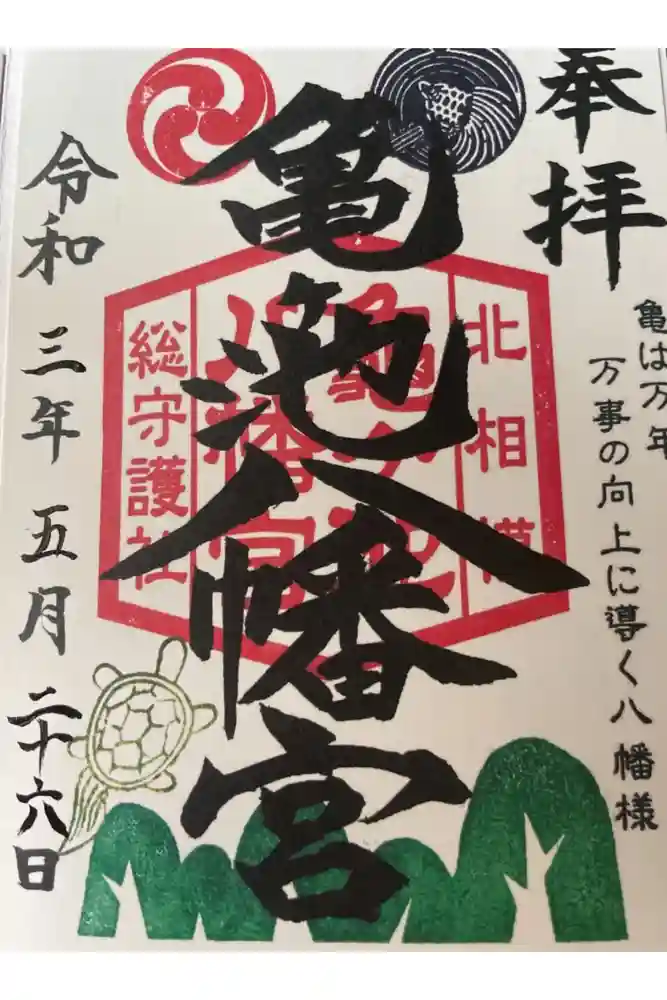 奉拝
亀は万年
万事の向上に導く八幡様
北相模
亀ヶ池
八幡宮
総守護社
亀池八幡宮
令和三年五月二十六日